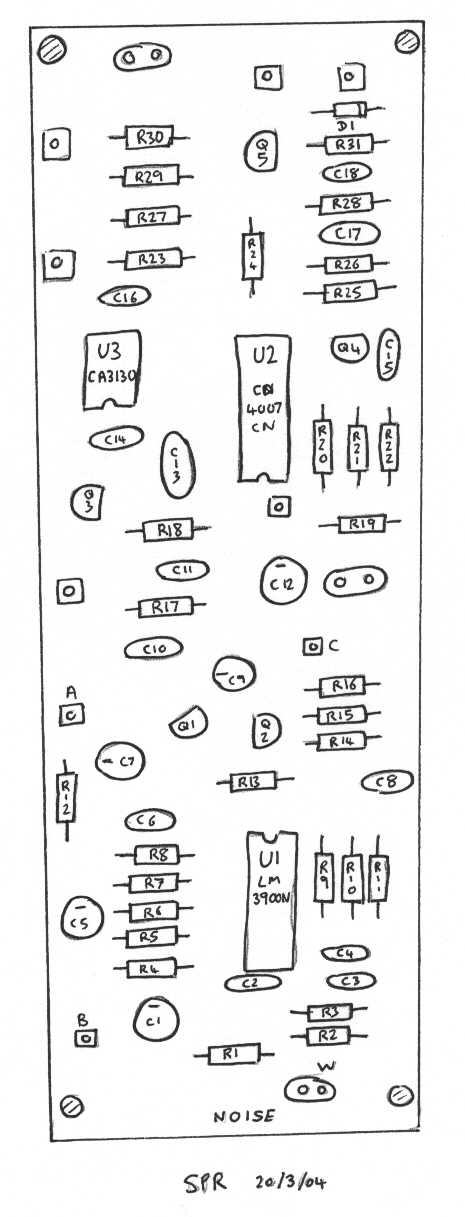 D1
R30
Q5
R31
R29
C18
R28
R27
C17
R23
R24
R26
R25
C16
U3
CA3130
U2
CD
4007
CN
Q4
C15
C14
C13
R20
R21
R22
Q3
R18
R19
C11
C12
R17
C10
C
C9
R16
A
R15
Q1
Q2
R14
C7
R12
R13
C8
C6
U1
LM
3900N
R8
R9
R10
R11
R7
R6
C5
R5
C4
R4
C2
C3
B
C1
R3
R2
R1
W
NOISE
SPR 20/3/04